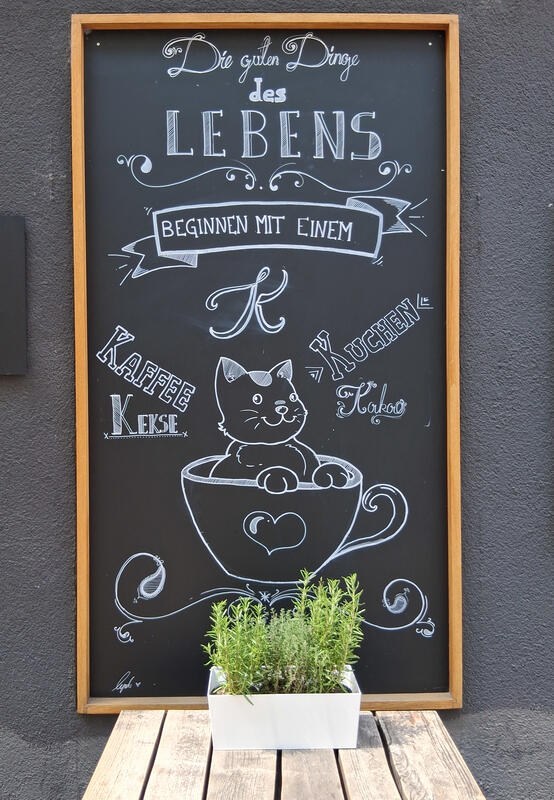 Die guten Dinge
des
LEBENS
BEGINNEN MIT EINEM
K
KAFFEE
KEKSE
KUCHEN
Kakao